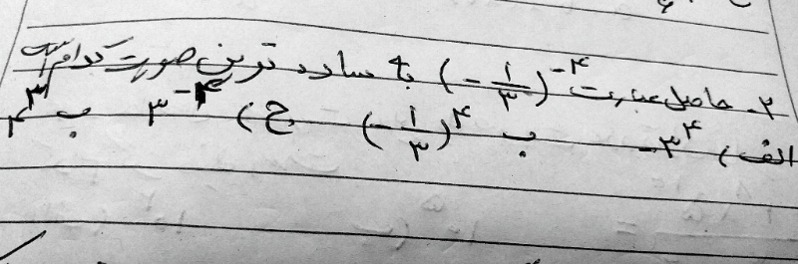 ۲. حاصل عبارت (-۱/۳)^-۴ به ساده ترین صورت کدام است
الف) -۳^۴ ب (-۱/۳)^۴ ج) ۳^-۴ ب ۳